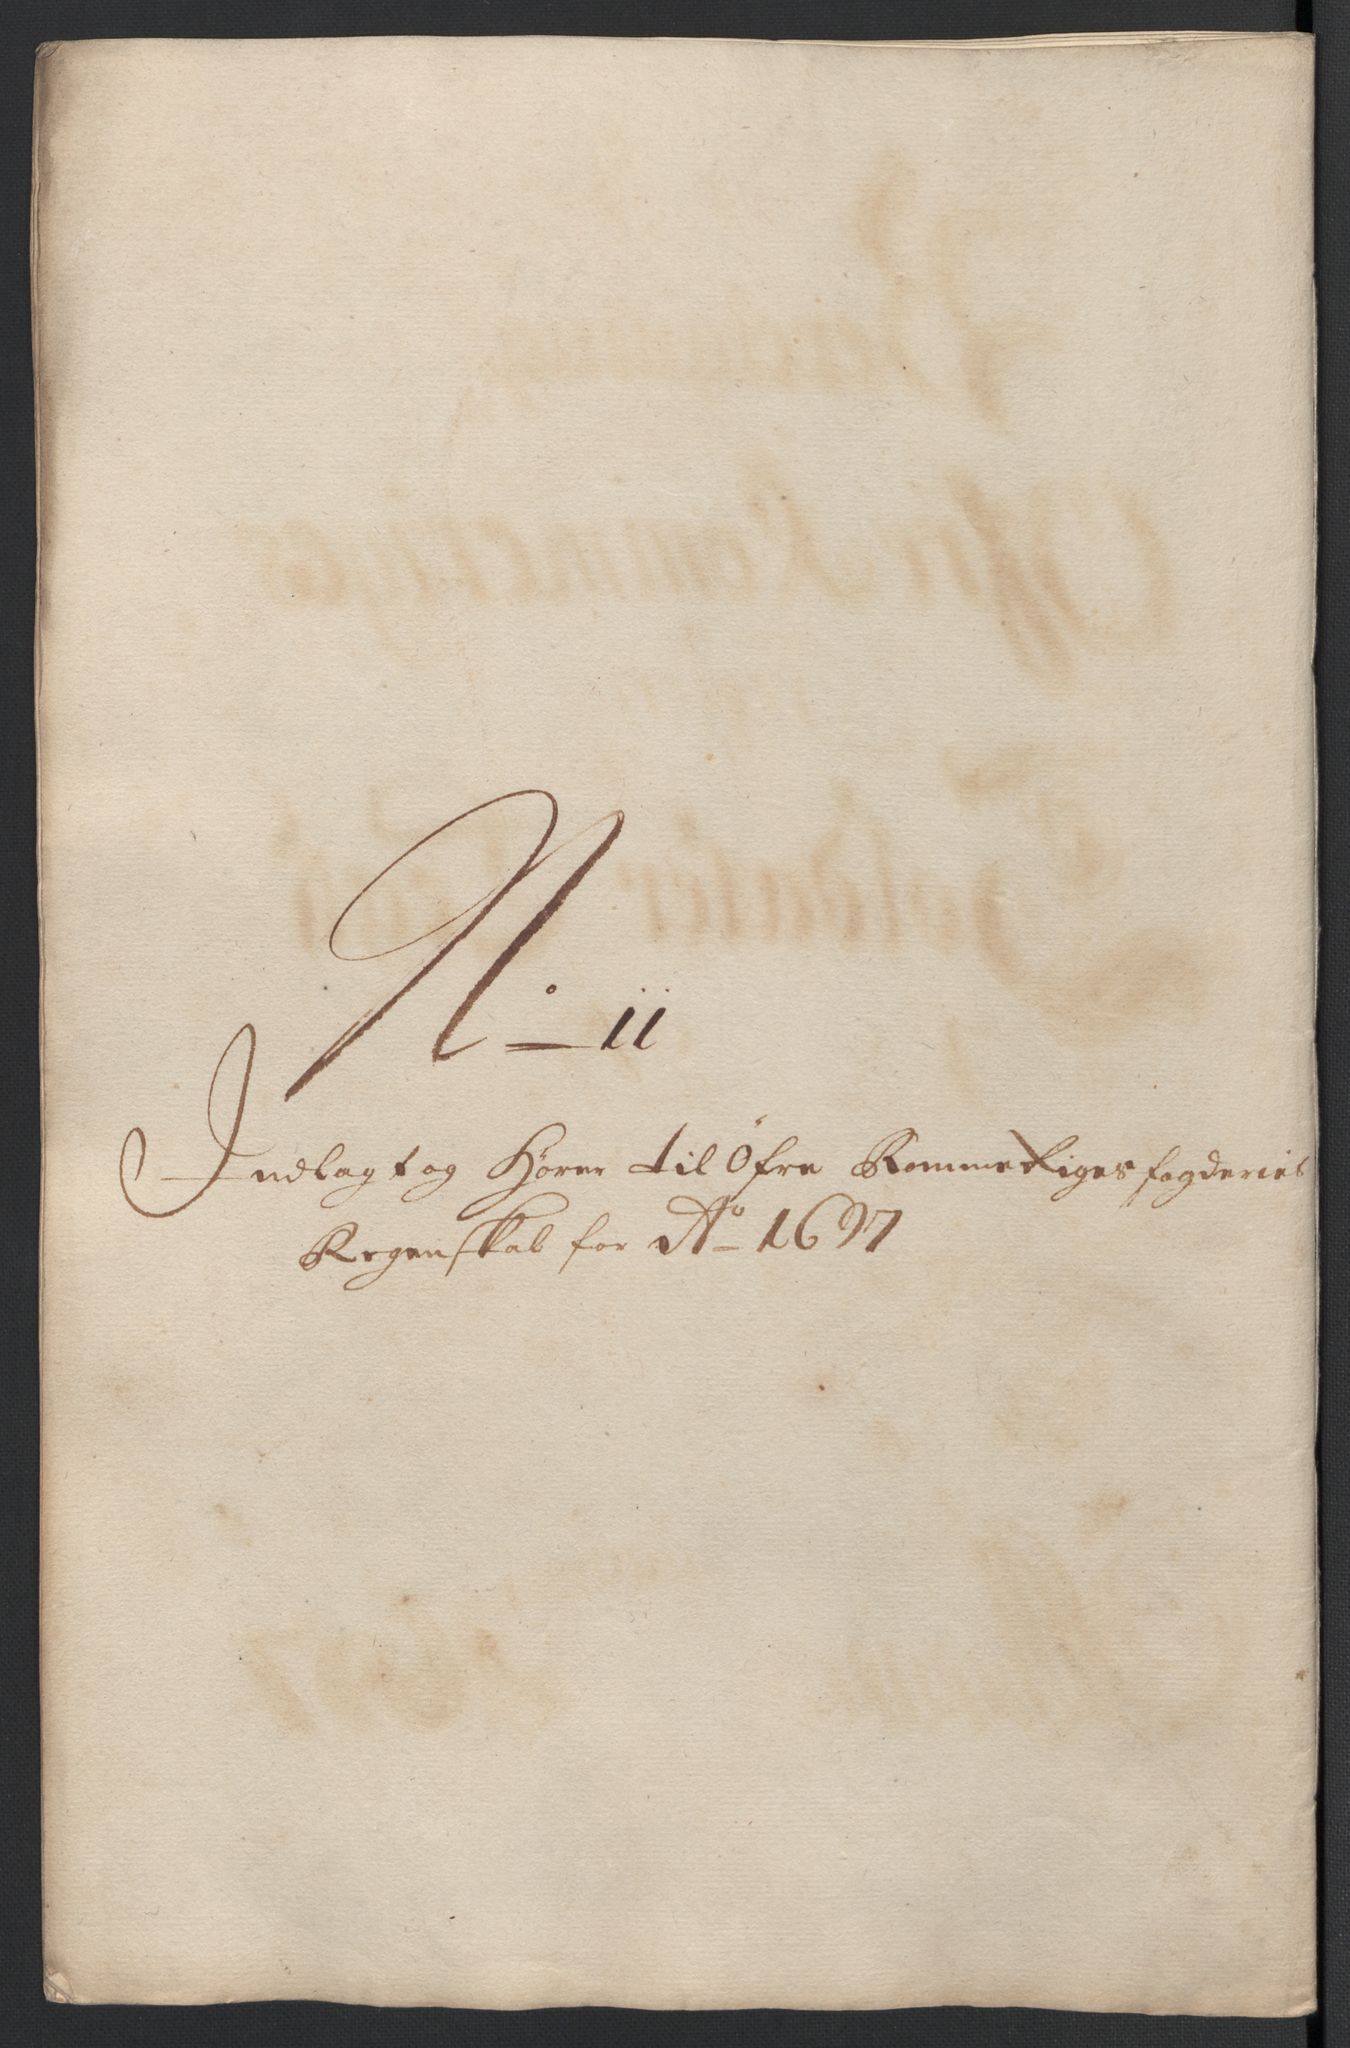 No 11
Indlagt og Hører til Øfre Rommerigesfogderies
Regenskab for Ao 1697